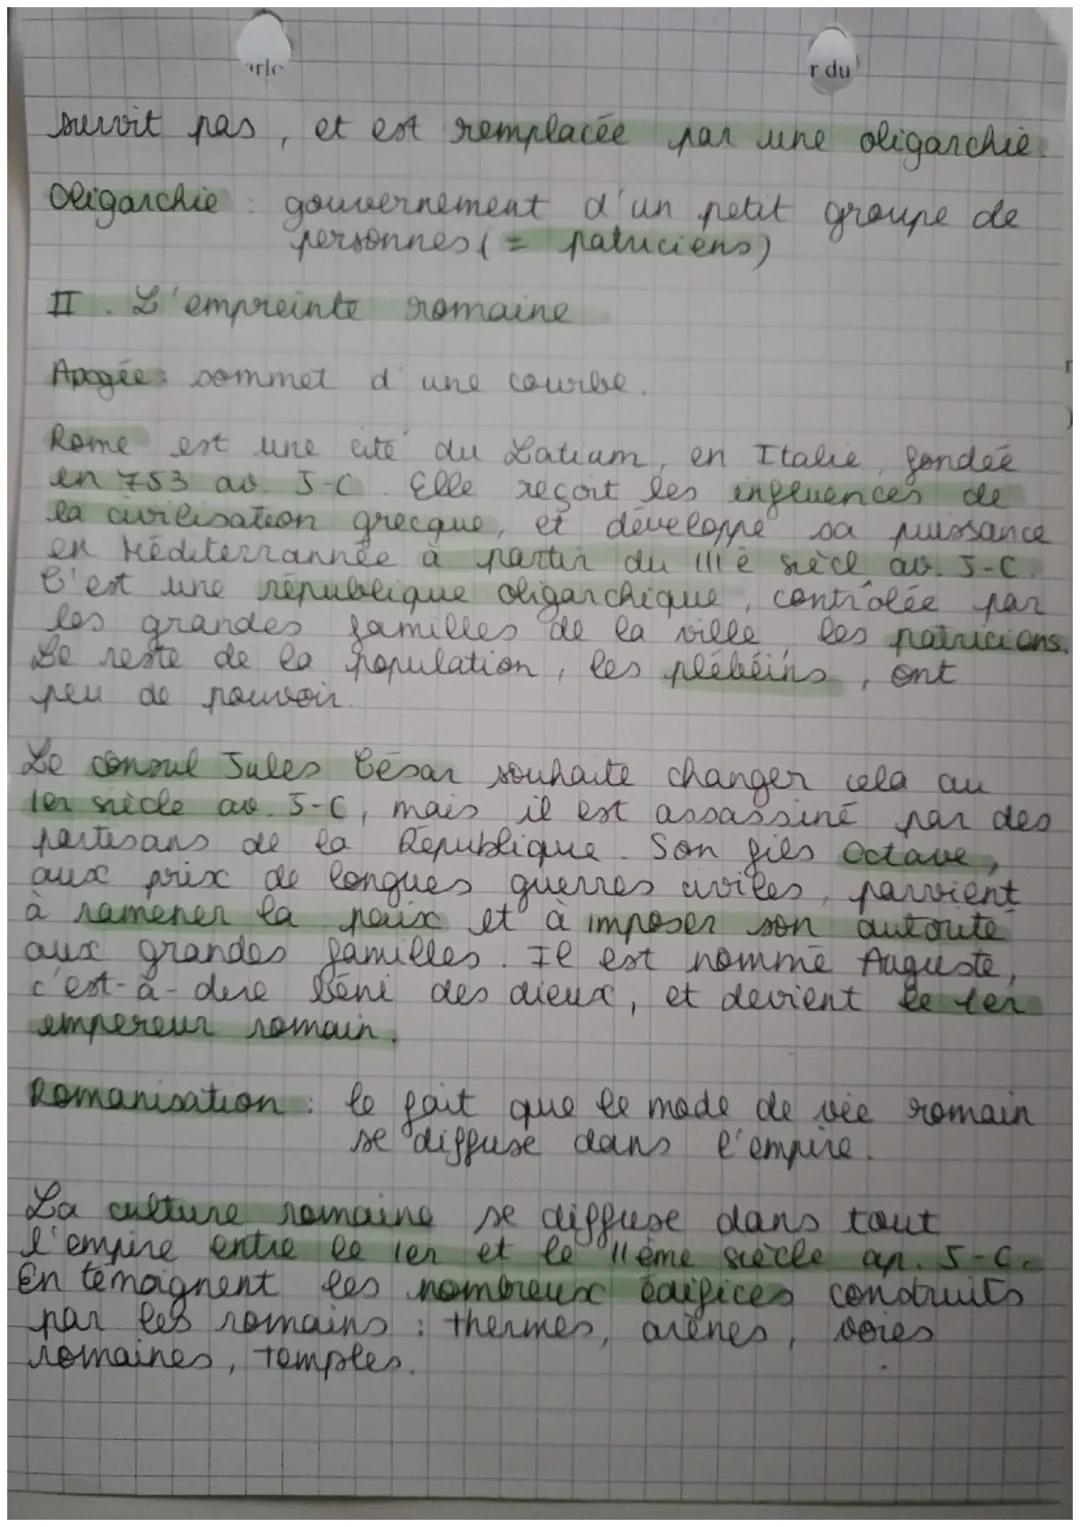 arle
r du
survit pas, et est remplacée par une oligarchie.
Oligarchie : gouvernement d'un petit groupe de
personnes (= patriciens)
II. L'empreinte romaine
Apogée : sommet d'une courbe.
Rome est une cité du Latium, en Italie, fondée
en 753 av. J-C. Elle reçoit les influences de
la civilisation grecque, et développe sa puissance
en Méditerrannée à partir du IIIè siècl av. J-C.
C'est une république oligarchique, contrôlée par
les grandes familles de la ville les patriciens.
Le reste de la population, les plébéins, ont
peu de pouvoir.
Le consul Jules César souhaite changer cela au
1er siècle av. J-C, mais il est assassiné par des
partisans de la République. Son fils Octave,
aux prix de longues guerres civiles, parvient
à ramener la paix et à imposer son autorité
aux grandes familles. Il est nommé Auguste,
c'est-à-dire béni des dieux, et devient le 1er
empereur romain.
Romanisation : le fait que le mode de vie romain
se diffuse dans l'empire.
La culture romaine se diffuse dans tout
l'empire entre le 1er et le IIème siècle ap. J-C.
En témoignent les nombreux édifices construits
par les romains : thermes, arènes, voies
romaines, temples.